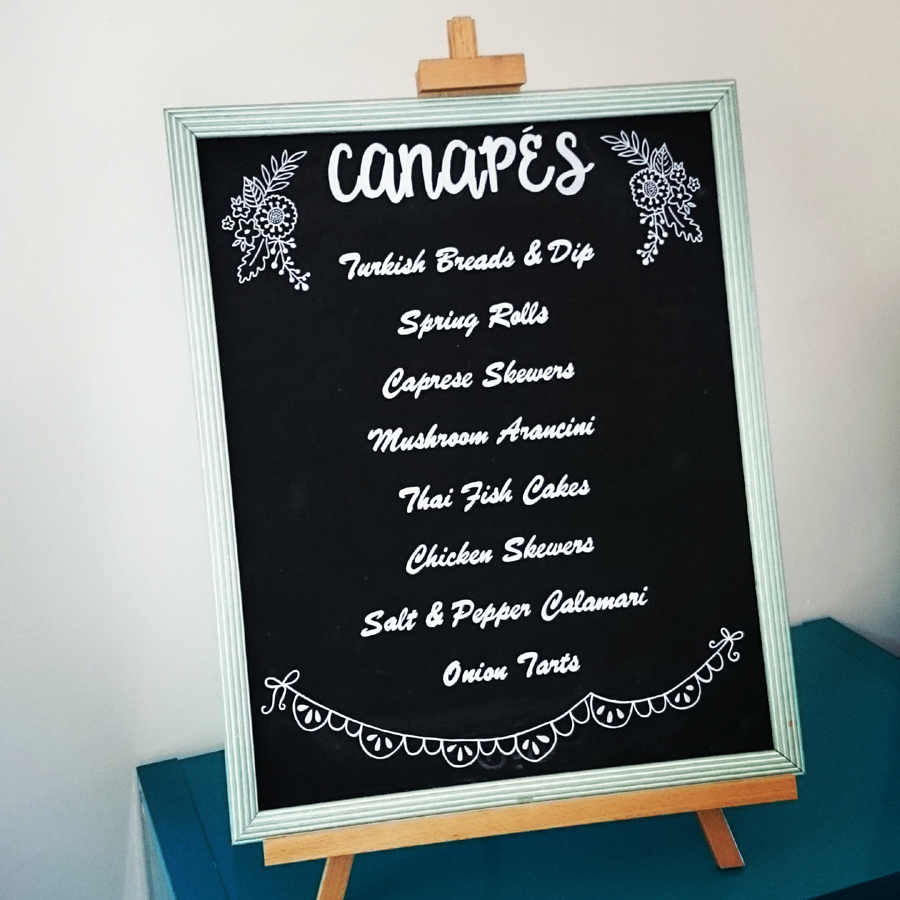 Canapés
Turkish Breads & Dip
Spring Rolls
Caprese Skewers
Mushroom Arancini
Thai Fish Cakes
Chicken Skewers
Salt & Pepper Calamari
Onion Tarts